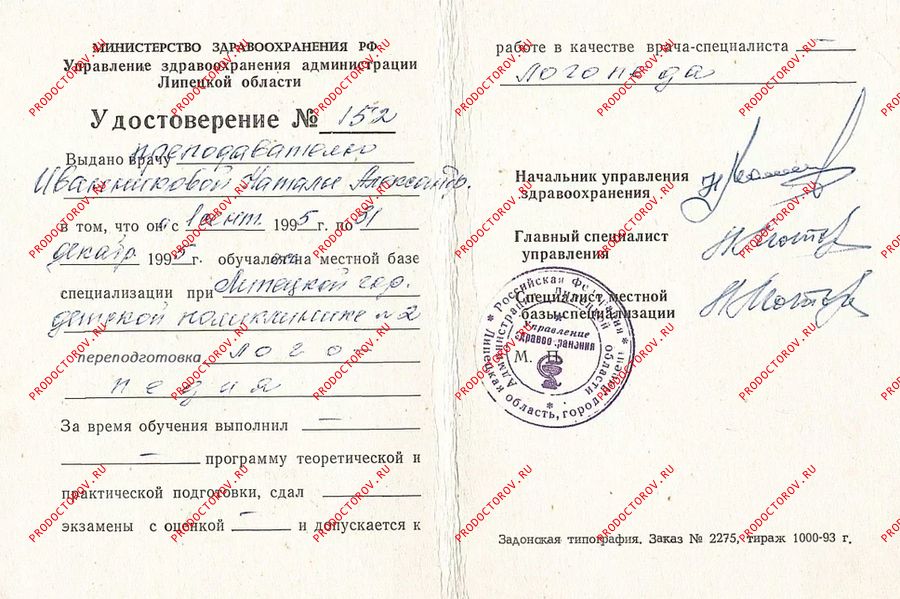 МИНИСТЕРСТВО ЗДРАВООХРАНЕНИЯ РФ
Управление здравоохранения администрации
Липецкой области
Удостоверение № 152
Выдано врачу преподавателю
Иванниковой Наталье Александр.
в том, что он с 1 сент. 1995 г. по 31
декабр. 1995 г. обучалась на местной базе
специализации при Липецкой гор.
детской поликлинике №2
переподготовка лого
педия
За время обучения выполнил —
— программу теоретической и
практической подготовки, сдал
экзамены с оценкой — и допускается к
работе в качестве врача-специалиста —
логопеда
Начальник управления
здравоохранения
Главный специалист
управления
Специалист местной
базы специализации
М. П.
Российская Федерация * Липецкая область, город Липецк *
Администрация Липецкой области
Управление
здравоохранения
Задонская типография. Заказ № 2275, тираж 1000-93 г.
PRODOCTOROV.RU